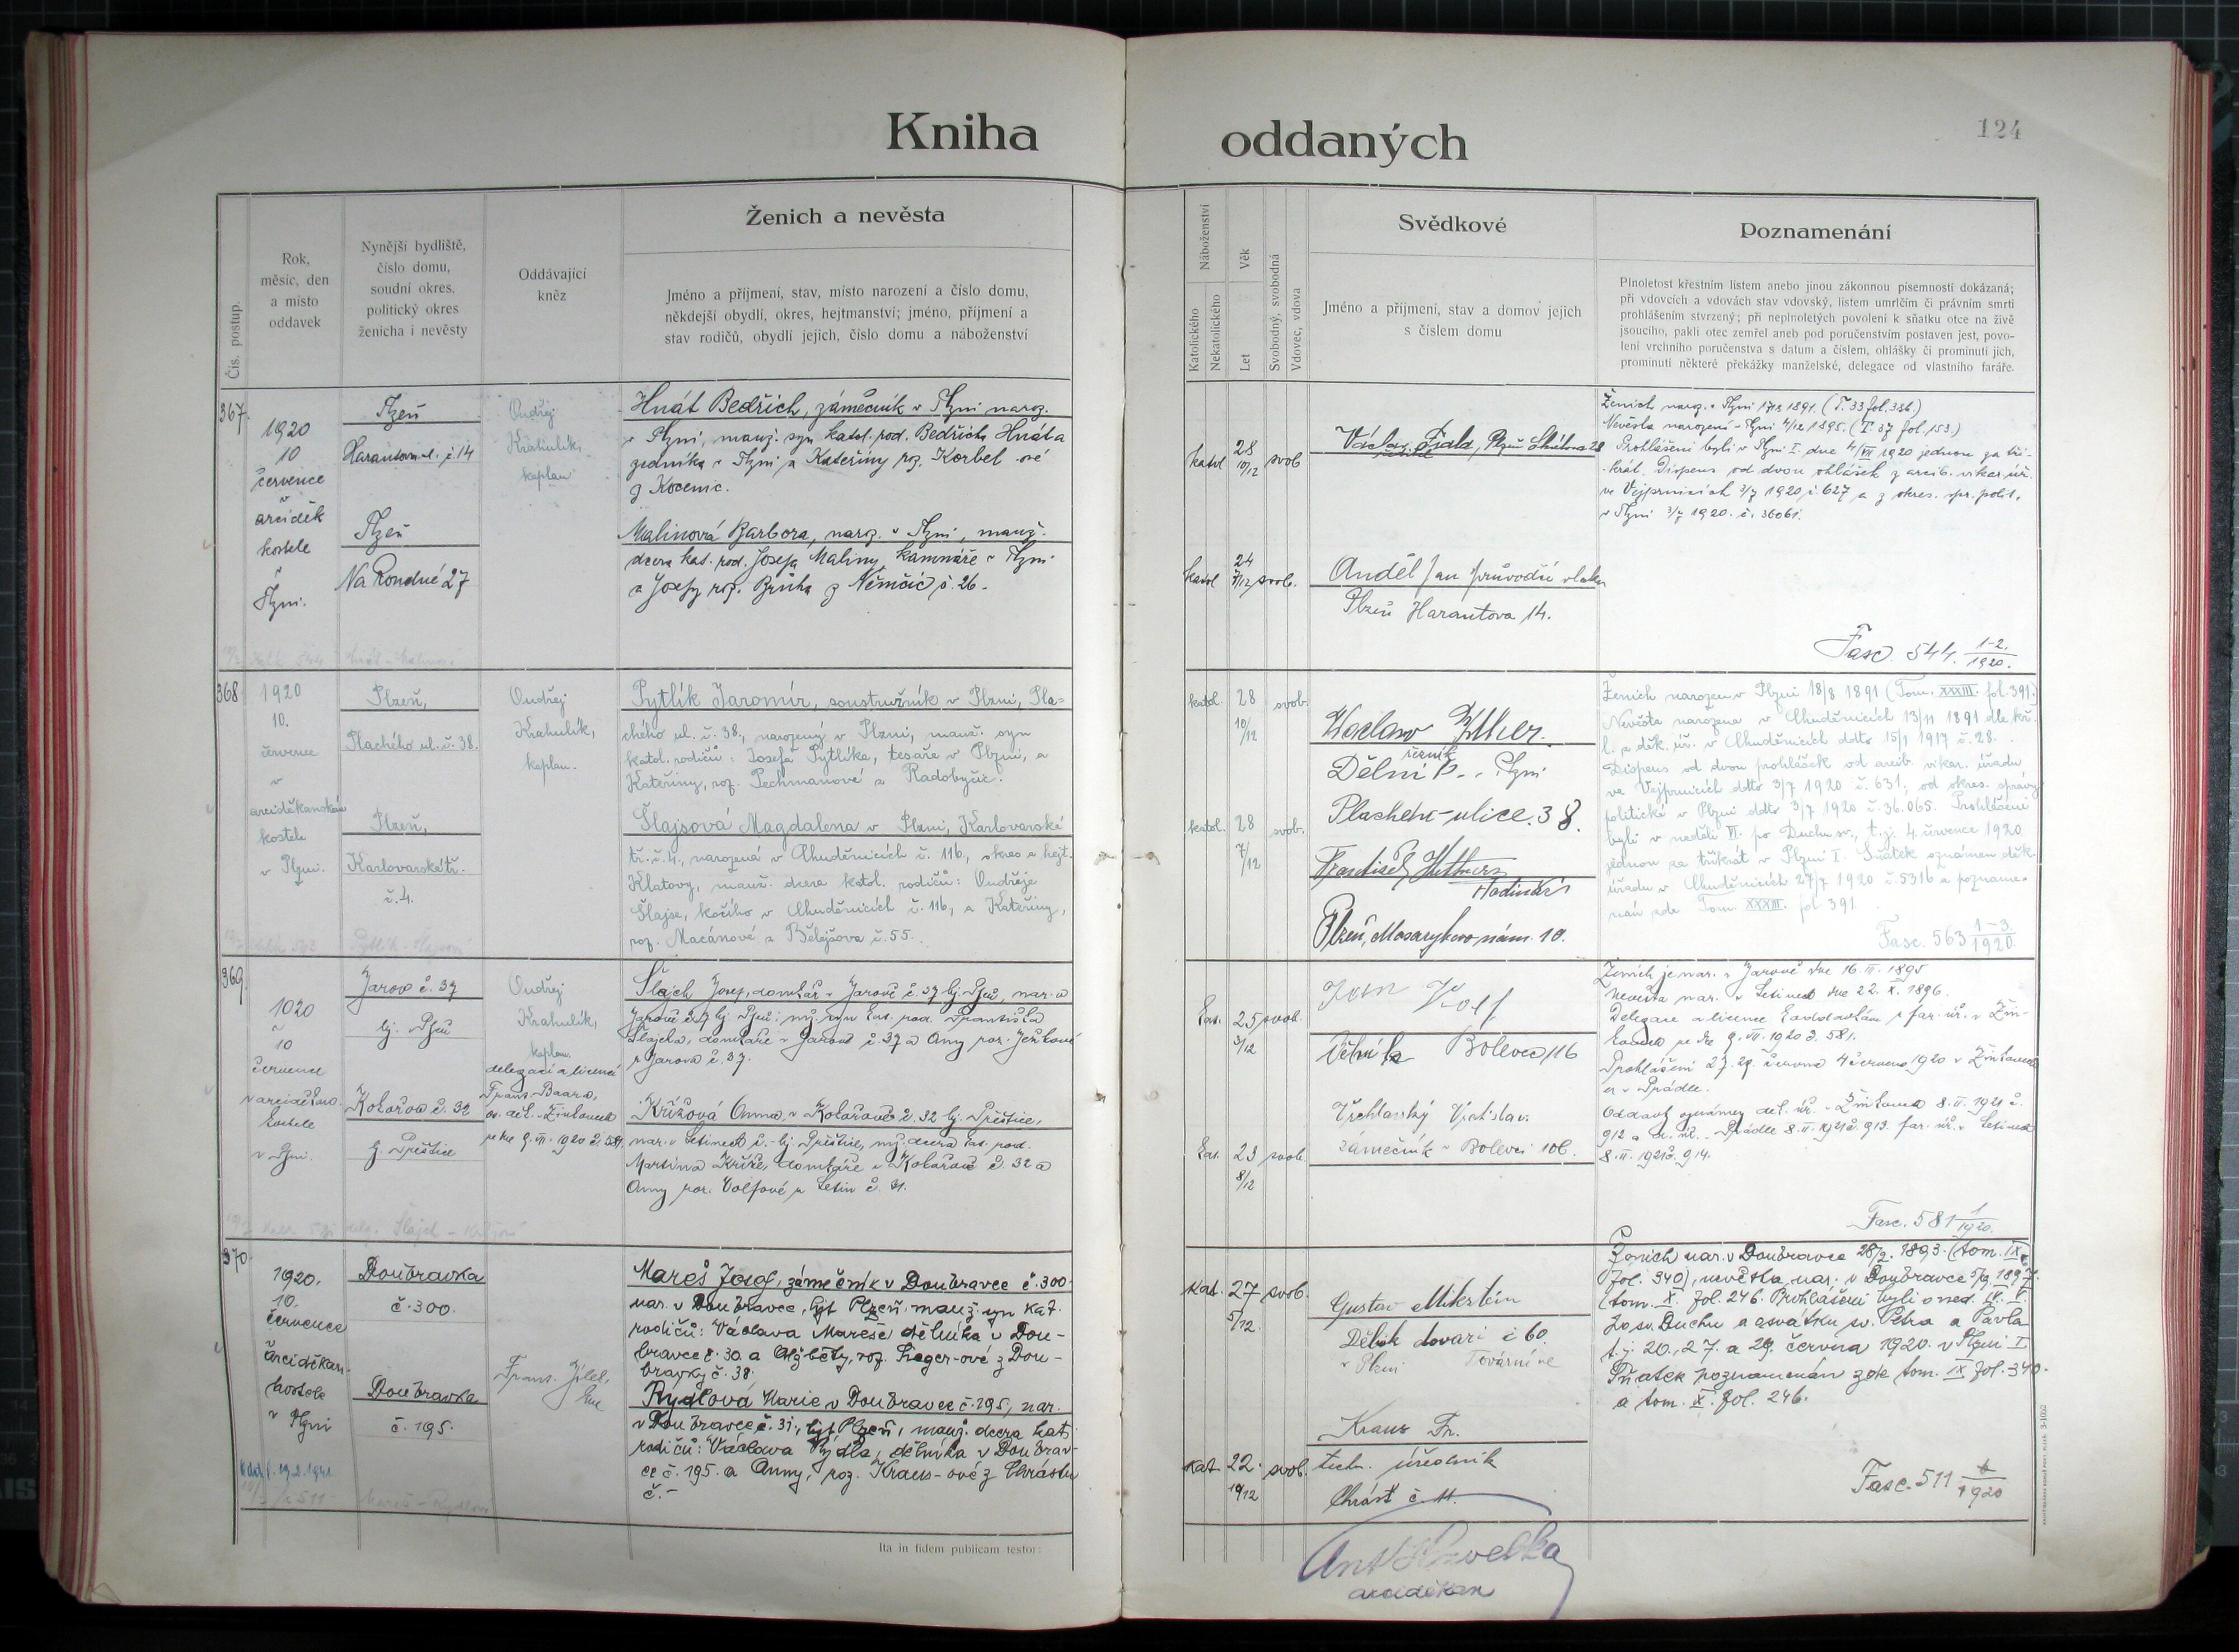 Kniha oddaných
124
Čís. postup.
Rok,
měsíc, den
a místo
oddavek
Nynější bydliště,
číslo domu,
soudní okres,
politický okres
ženicha i nevěsty
Oddávající
kněz
Ženich a nevěsta
Jméno a příjmení, stav, místo narození a číslo domu,
někdejší obydlí, okres, hejtmanství; jméno, příjmení a
stav rodičů, obydlí jejich, číslo domu a náboženství
Náboženství
Katolického
Nekatolického
Věk
Let
Svobodný, svobodná
Vdovec, vdova
Svědkové
Jméno a příjmení, stav a domov jejich
s číslem domu
Poznamenání
Plnoletost křestním listem anebo jinou zákonnou písemností dokázaná;
při vdovcích a vdovách stav vdovský, listem umrlčím či právním smrti
prohlášením stvrzený; při neplnoletých povolení k sňatku otce na živě
jsoucího, pakli otec zemřel aneb pod poručenstvím postaven jest, povo-
lení vrchního poručenstva s datum a číslem, ohlášky či prominutí jich,
prominutí některé překážky manželské, delegace od vlastního faráře.
367.
1920
10
července
v
arciděk
kostele
v
Plzni.
Plzeň
Harantova ul. č. 14
Plzeň
Na Rondné 27
Ondřej
Krahulík,
kaplan
Hnát Bedřich, zámečník v Plzni naroz.
v Plzni, manž. syn katol. rod. Bedřicha Hnáta
zedníka v Plzni a Kateřiny roz. Korbel-ové
z Kocenic.
Malinová Barbora, naroz. v Plzni, manž.
dcera kat. rod. Josefa Maliny, kamnáře v Plzni
a Josefy roz. Brůha z Němčic č. 26.
katol
28
10/12
svob
katol
24
7/12
svob.
Václav Fiala, Plzeň
Anděl Jan průvodčí vlaku
Plzeň Harantova 14.
Ženich naroz. v Plzni 17/8 1891. (T. 33 fol. 386.)
Nevěsta narozena v Plzni 4/12 1895. (T. 37 fol. 153.)
Prohlášeni byli v Plzni I. dne 4/VII 1920 jednou za tři-
krát. Dispens od dvou ohlášek z arcib. vikar. úř.
ve Vejprnicích 3/7 1920 č. 627 a z okres. spr. polit.
v Plzni 3/7 1920. č. 36061.
Fasc. 544. 1-2./1920.
368
1920
10.
července
v
arciděkanském
kostele
v Plzni.
Plzeň,
Plachého ul. č. 38.
Plzeň,
Karlovarská tř.
č. 4.
Ondřej
Krahulík,
kaplan.
Pytlík Jaromír, soustružník v Plzni, Pla-
chého ul. č. 38., narozený v Plzni, manž. syn
katol. rodičů: Josefa Pytlíka, tesaře v Plzni, a
Kateřiny, roz. Pechmanové z Radobyčic.
Šlajsová Magdalena v Plzni, Karlovarská
tř. č. 4., narozená v Chuděnicích č. 116, okres a hejt.
Klatovy, manž. dcera katol. rodičů: Ondřeje
Šlajse, kočího v Chuděnicích č. 116, a Kateřiny,
roz. Macánové z Bělejšova č. 55.
katol.
28
10/12
svob.
katol.
28
7/12
svob.
řezník
Dělní v Plzni
Plachého-ulice. 38.
František
Hodinář
Plzeň, Masarykovo nám. 10.
Ženich narozen v Plzni 18/8 1891 (Tom. XXXIII. fol. 391.)
Nevěsta narozena v Chuděnicích 13/11 1891 dle kř.
l. z děk. úř. v Chuděnicích ddto 15/1 1917 č. 28.
Dispens od dvou prohlášek od arcib. vikar. úřadu
ve Vejprnicích ddto 3/7 1920 č. 631, od okres. správy
politické v Plzni ddto 3/7 1920 č. 36.065. Prohlášeni
byli v neděli VI. po Duchu sv., t. j. 4. července 1920
jednou za třikrát v Plzni I. Sňatek oznámen děk.
úřadu v Chuděnicích 27/7 1920 č. 5316 a pozname-
nán zde Tom. XXXIII. fol 391.
Fasc. 563 1-3/1920.
369.
1920
10
července
v arciděkan.
kostele
v Plzni.
Jarov č. 37
hj. Plzeň
Kolářov č. 32
hj. Přeštice
Ondřej
Krahulík,
kaplan.
delegací a licencí
Frant. Baara,
os. děk. v Žinkovech
ze dne 9. VII. 1920 č. 581.
Šlajch Josef, domkář v Jarově č. 37 hj. Plzeň, nar. v
Jarově č. 37 hj. Plzeň; mž. syn kat. rod. Františka
Šlajcha, domkáře v Jarově č. 37 a Anny roz. Ježkové
z Jarova č. 37.
Křížová Anna v Kolářově č. 32 hj. Přeštice,
nar. v Letinech č. - hj. Přeštice, mž. dcera kat. rod.
Martina Kříže, domkáře v Kolářově č. 32 a
Anny roz. Volfové z Letin č. 31.
kat.
25
5/12
svob.
kat.
23
8/12
svob.
Jan Volf
Dělník Bolevec 116
Vrchlavský Vratislav.
zámečník v Bolevci 106.
Ženich je nar. v Jarově dne 16. II. 1895
Nevěsta nar. v Letinech dne 22. X. 1896.
Delegace a licence k oddavkám z far. úř. v Žin-
kovech ze dne 9. VII. 1920 č. 581.
Prohlášeni 27. 29. června 4 července 1920 v Žinkovech
a v Prádle.
Oddavky oznámeny děk. úř. v Žinkovech 8. II. 1921 č.
912 a d. úř. v Prádle 8. II. 1921 č. 913. far. úř. v Letinech
8. II. 1921 č. 914.
Fasc. 581 1/1920.
370.
1920.
10.
července
Arciděkan.
kostele
v Plzni
Doubravka
č. 300.
Doubravka
č. 195.
Frant. Jílek,
Mareš Josef, zámečník v Doubravce č. 300.
nar. v Doubravce, hjt Plzeň, manž. syn kat.
rodičů: Václava Mareše dělníka v Dou-
bravce č. 30. a Alžběty, roz. Sieger-ové z Dou-
bravky č. 38.
Rýdlová Marie v Doubravce č. 195, nar.
v Doubravce č. 31., hjt Plzeň, manž. dcera kat.
rodičů: Václava Rýdla, dělníka v Doubrav-
ce č. 195. a Anny, roz. Kraus-ové z Chrástu
č. -
kat.
27
5/12.
svob.
kat.
22.
10/12
svob.
Gustav Mikstein
Dělník č 60.
v Plzni Tovární ul
Kraus Fr.
techn. úředník
Chrást č. 11.
Ženich nar. v Doubravce 28/2. 1893. (tom. IX.
fol. 340), nevěsta nar. v Doubravce 5/9. 1897.
(tom. X. fol. 246. Prohlášeni byli o ned. IV. V.
po sv. Duchu a o svátku sv. Petra a Pavla
t. j. 20., 27. a 29. června 1920. v Plzni I.
Sňatek poznamenán zde tom. IX fol. 340.
a tom. X. fol. 246.
Fasc. 511 6/1920
Ita in fidem publicam testor:
arciděkan